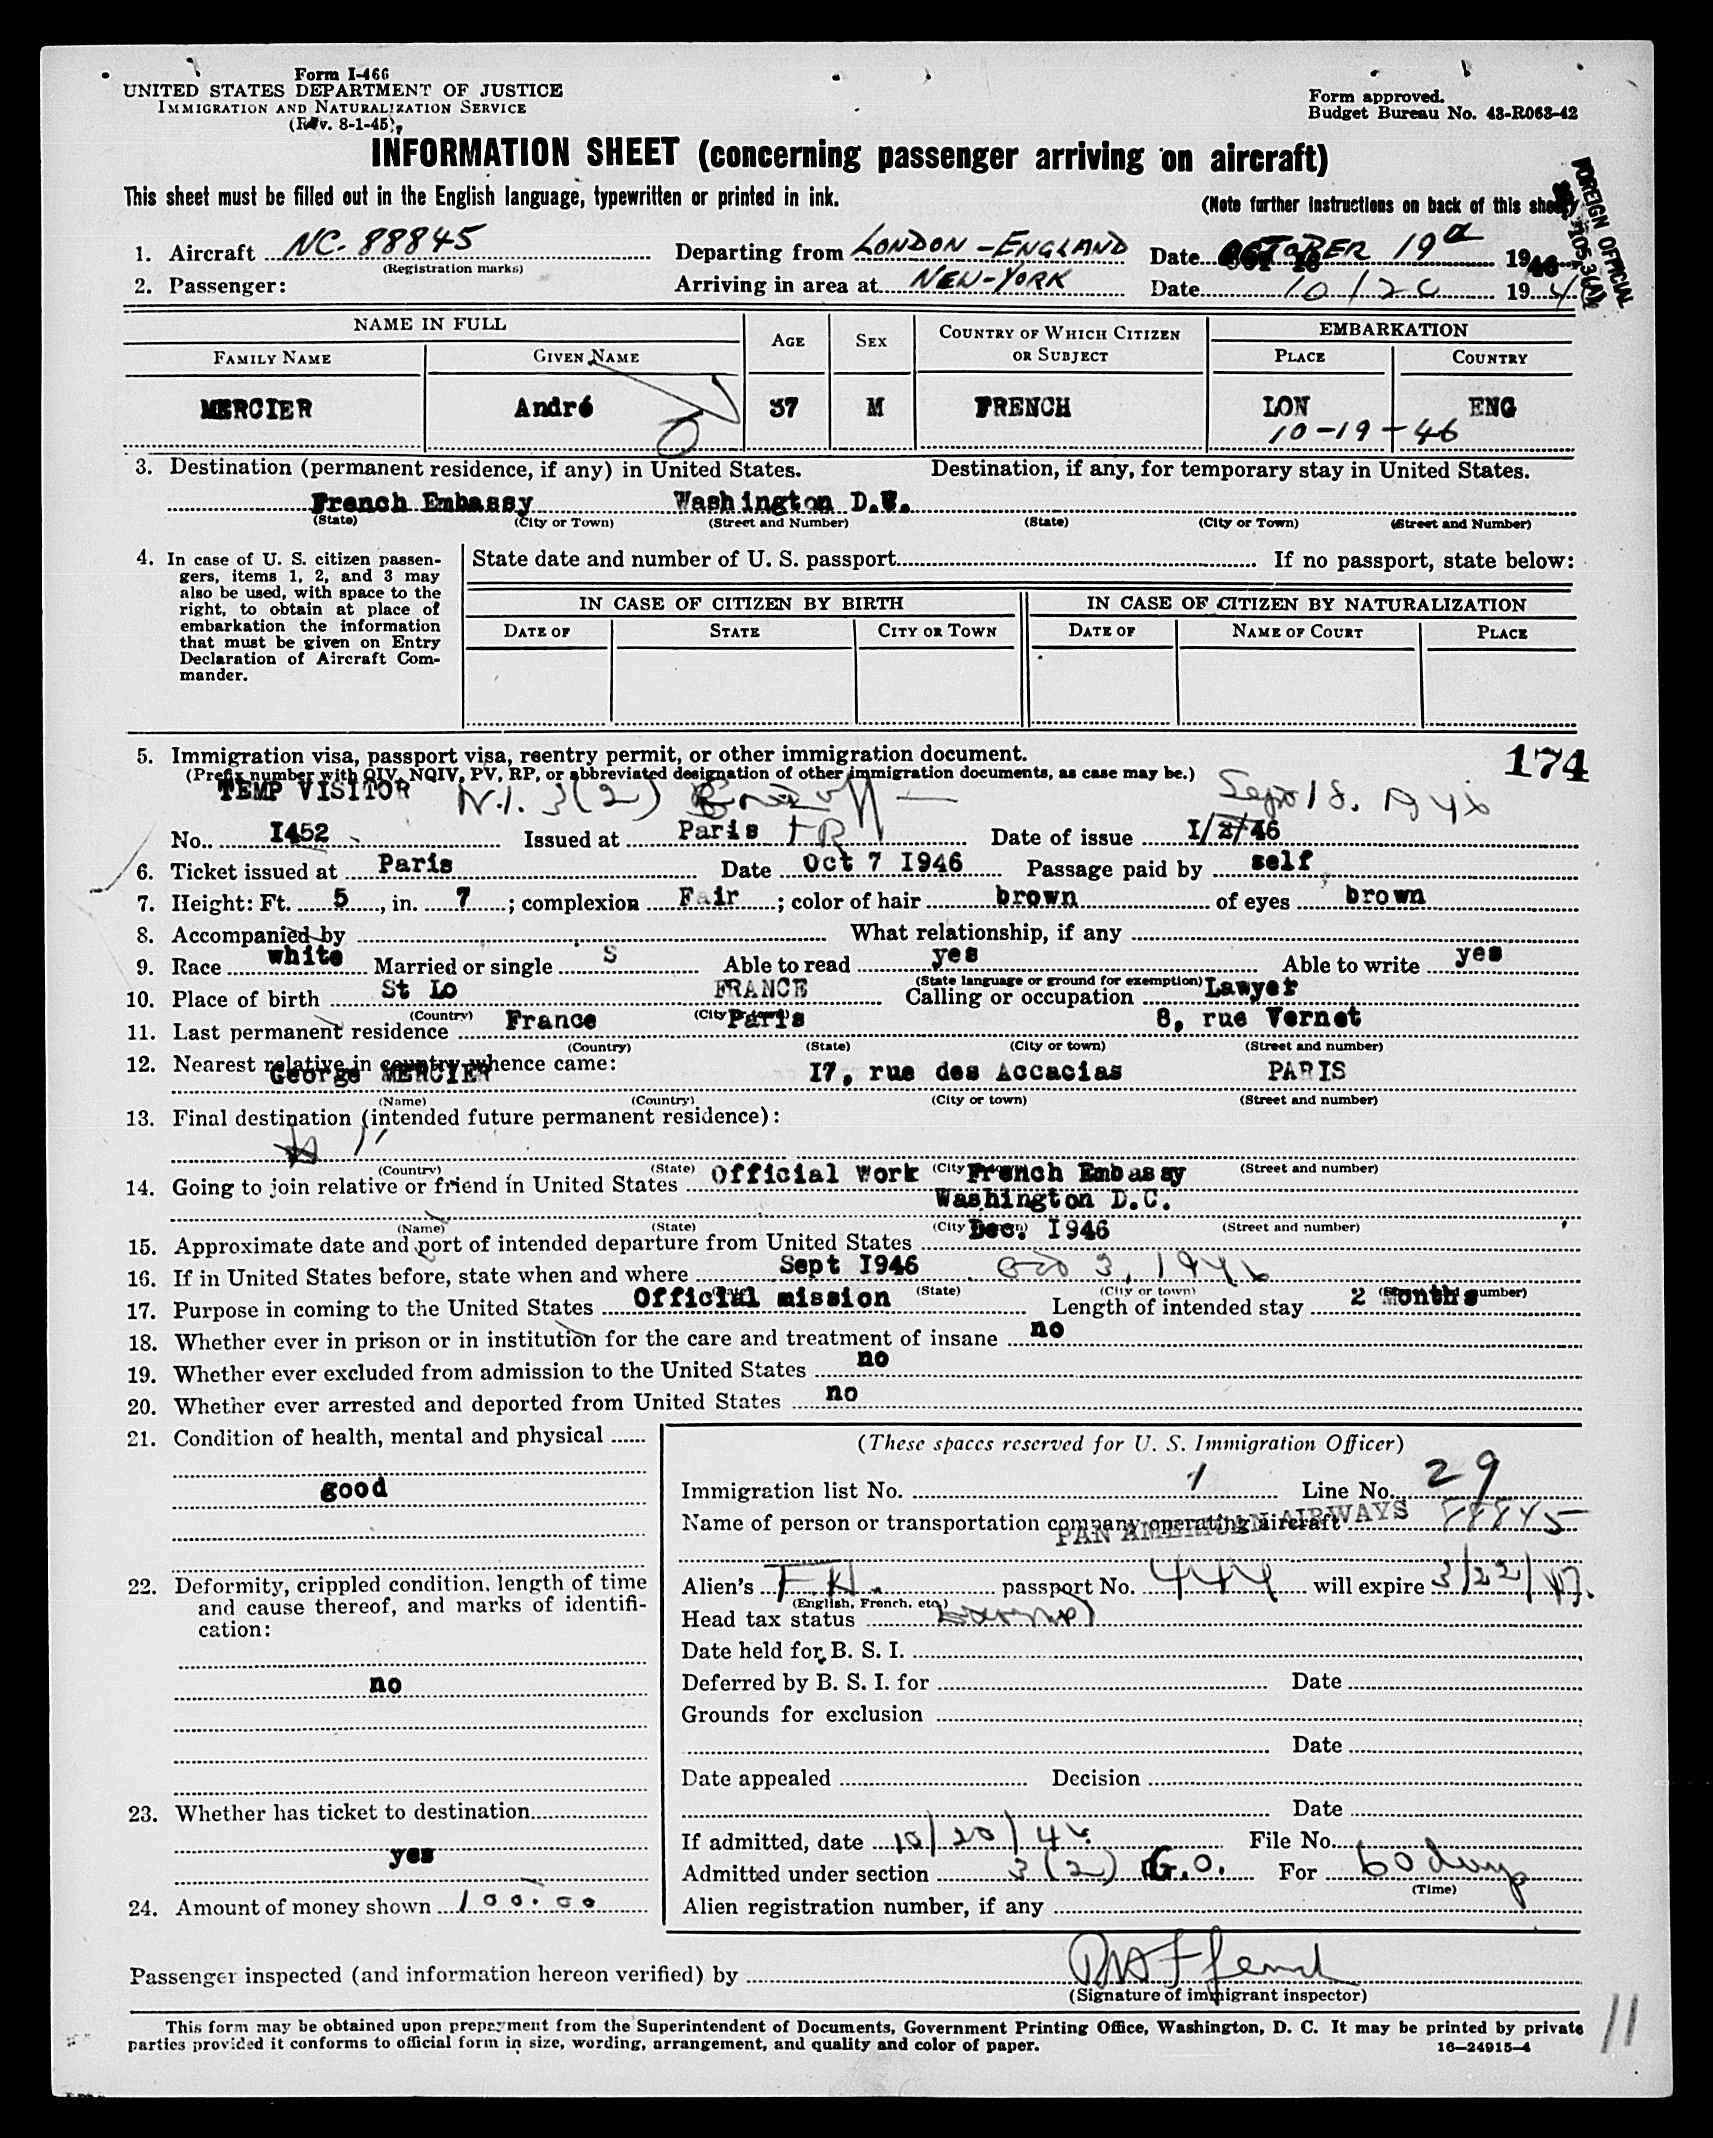 Form I-466
UNITED STATES DEPARTMENT OF JUSTICE
IMMIGRATION AND NATURALIZATION SERVICE
(Rev. 8-1-45)
Form approved.
Budget Bureau No. 43-R063-42
INFORMATION SHEET (concerning passenger arriving on aircraft)
This sheet must be filled out in the English language, typewritten or printed in ink.
(Note further instructions on back of this sheet)
FOREIGN OFFICIAL
105.3(A)
1. Aircraft NC-88845 Departing from LONDON - ENGLAND Date OCTOBER 19 1946
(Registration marks)
2. Passenger: Arriving in area at NEW-YORK Date 10/20 194
NAME IN FULL AGE SEX COUNTRY OF WHICH CITIZEN OR SUBJECT EMBARKATION
FAMILY NAME GIVEN NAME PLACE COUNTRY
MERCIER André 37 M FRENCH LON ENG
10-19-46
3. Destination (permanent residence, if any) in United States. Destination, if any, for temporary stay in United States.
French Embassy Washington D.C.
(State) (City or Town) (Street and Number) (State) (City or Town) (Street and Number)
4. In case of U. S. citizen passen-
gers, items 1, 2, and 3 may
also be used, with space to the
right, to obtain at place of
embarkation the information
that must be given on Entry
Declaration of Aircraft Com-
mander.
State date and number of U. S. passport If no passport, state below:
IN CASE OF CITIZEN BY BIRTH IN CASE OF CITIZEN BY NATURALIZATION
DATE OF STATE CITY OR TOWN DATE OF NAME OF COURT PLACE
5. Immigration visa, passport visa, reentry permit, or other immigration document. 174
(Prefix number with QIV, NQIV, PV, RP, or abbreviated designation of other immigration documents, as case may be.)
TEMP VISITOR N.I. 3(2) Sept 18, 1946
No. I452 Issued at Paris FR Date of issue I/2/46
6. Ticket issued at Paris Date Oct 7 I946 Passage paid by self
7. Height: Ft. 5, in. 7; complexion Fair; color of hair brown of eyes brown
8. Accompanied by What relationship, if any
9. Race white Married or single S Able to read yes Able to write yes
(State language or ground for exemption)
10. Place of birth St Lo FRANCE Calling or occupation Lawyer
(Country) (City or town)
11. Last permanent residence France Paris 8, rue Vernet
(Country) (State) (City or town) (Street and number)
12. Nearest relative in country whence came:
George MERCIER I7, rue des Accacias PARIS
(Name) (Country) (City or town) (Street and number)
13. Final destination (intended future permanent residence):
(Country) (State) (City or town) (Street and number)
14. Going to join relative or friend in United States Official Work French Embassy
Washington D.C.
(Name) (State) (City or town) (Street and number)
15. Approximate date and port of intended departure from United States Dec. I946
16. If in United States before, state when and where Sept I946 Oct 3, 1946
(Date) (State) (City or town) (Street and number)
17. Purpose in coming to the United States Official mission Length of intended stay 2 Months
18. Whether ever in prison or in institution for the care and treatment of insane no
19. Whether ever excluded from admission to the United States no
20. Whether ever arrested and deported from United States no
21. Condition of health, mental and physical
good
22. Deformity, crippled condition, length of time
and cause thereof, and marks of identifi-
cation:
no
23. Whether has ticket to destination
yes
24. Amount of money shown 100.00
(These spaces reserved for U. S. Immigration Officer)
Immigration list No. 1 Line No. 29
Name of person or transportation company operating aircraft 88845
PAN AMERICAN AIRWAYS
Alien's FH. passport No. 444 will expire 3/22/47.
(English, French, etc.)
Head tax status exempt
Date held for B. S. I.
Deferred by B. S. I. for Date
Grounds for exclusion
Date
Date appealed Decision
Date
If admitted, date 10/20/46 File No.
Admitted under section 3(2) G.O. For 60 days
(Time)
Alien registration number, if any
Passenger inspected (and information hereon verified) by
(Signature of immigrant inspector)
This form may be obtained upon prepayment from the Superintendent of Documents, Government Printing Office, Washington, D. C. It may be printed by private
parties provided it conforms to official form in size, wording, arrangement, and quality and color of paper. 16—24915-4
11